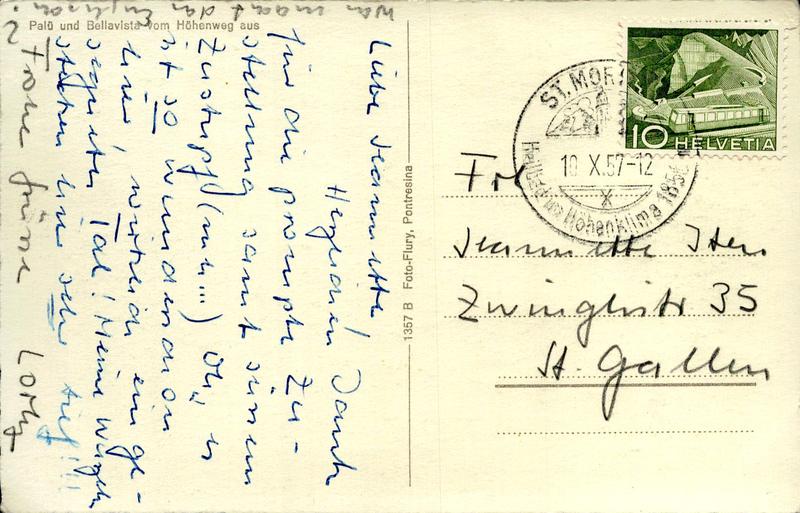 Palü und Bellavista vom Höhenweg aus
Liebe Jeannette,
Herzlichen Dank
für die prompte Zu-
stellung samt süssem
Zustupf (mh...) Oh, es
ist so wunderschön
hier, wirklich ein ge-
segnetes Tal! Meine Wurzeln
stecken hier sehr tief!!!
Frohe Grüsse
was macht das
1357 B Foto-Flury, Pontresina
ST. MOR
10 X.57-12
Höhenklima 1856
10 HELVETIA
Frl
Jeannette Iten
Zwinglistr 35
St. Gallen